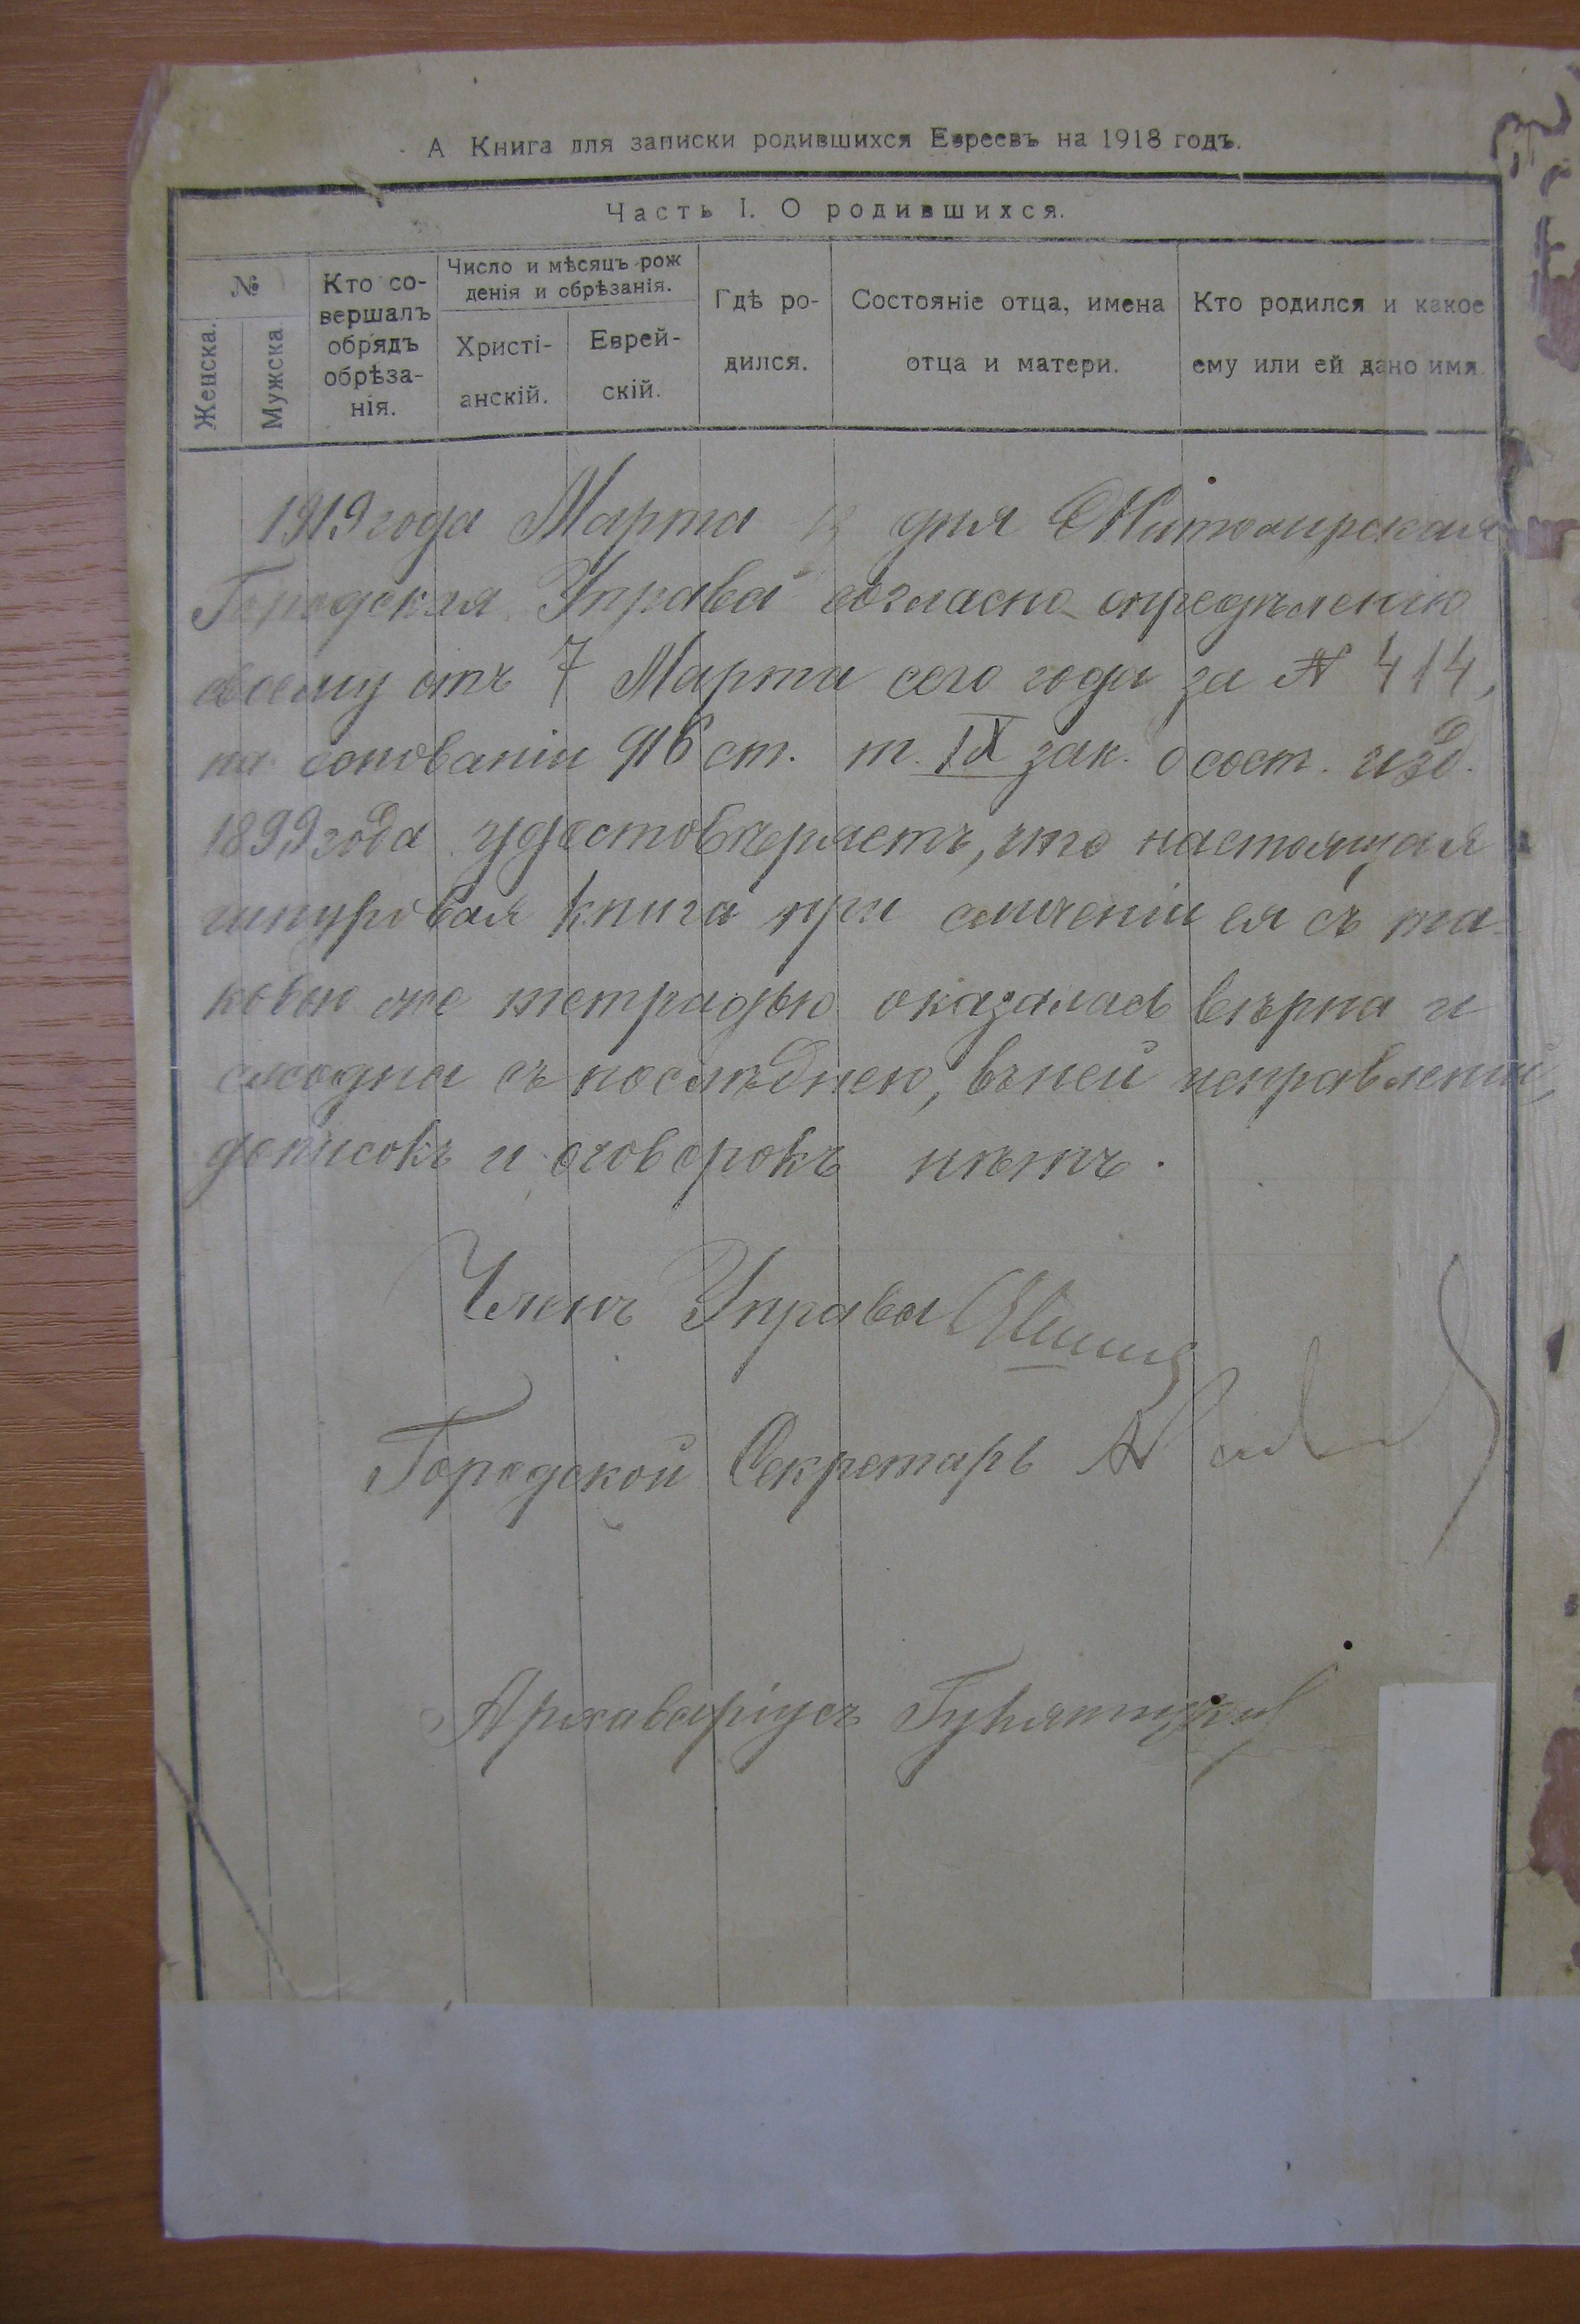 А Книга для записки родившихся Евреевъ на 1918 годъ.
Часть I. О родившихся.
№
Женска.
Мужска
Кто со-
вершалъ
обрядъ
обрѣза-
нія.
Число и мѣсяцъ рож
денія и обрѣзанія.
Христі-
анскій.
Еврей-
скій.
Гдѣ ро-
дился.
Состояніе отца, имена
отца и матери.
Кто родился и какое
ему или ей дано имя.
1919 года Марта дня Житомирская
Городская Управа согласно опредѣленію
своему отъ 7 Марта сего года за № 414,
на основаніи 916 ст. т. IX зак. о сост. изд.
1899 года удостовѣряетъ, что настоящая
шнуровая книга при сличеніи ея съ та-
ковою же тетрадью оказалась вѣрна и
сходна съ послѣднею, въ ней исправленій,
дописокъ и оговорокъ нѣтъ.
Членъ Управы
Городской Секретарь
Архиваріусъ